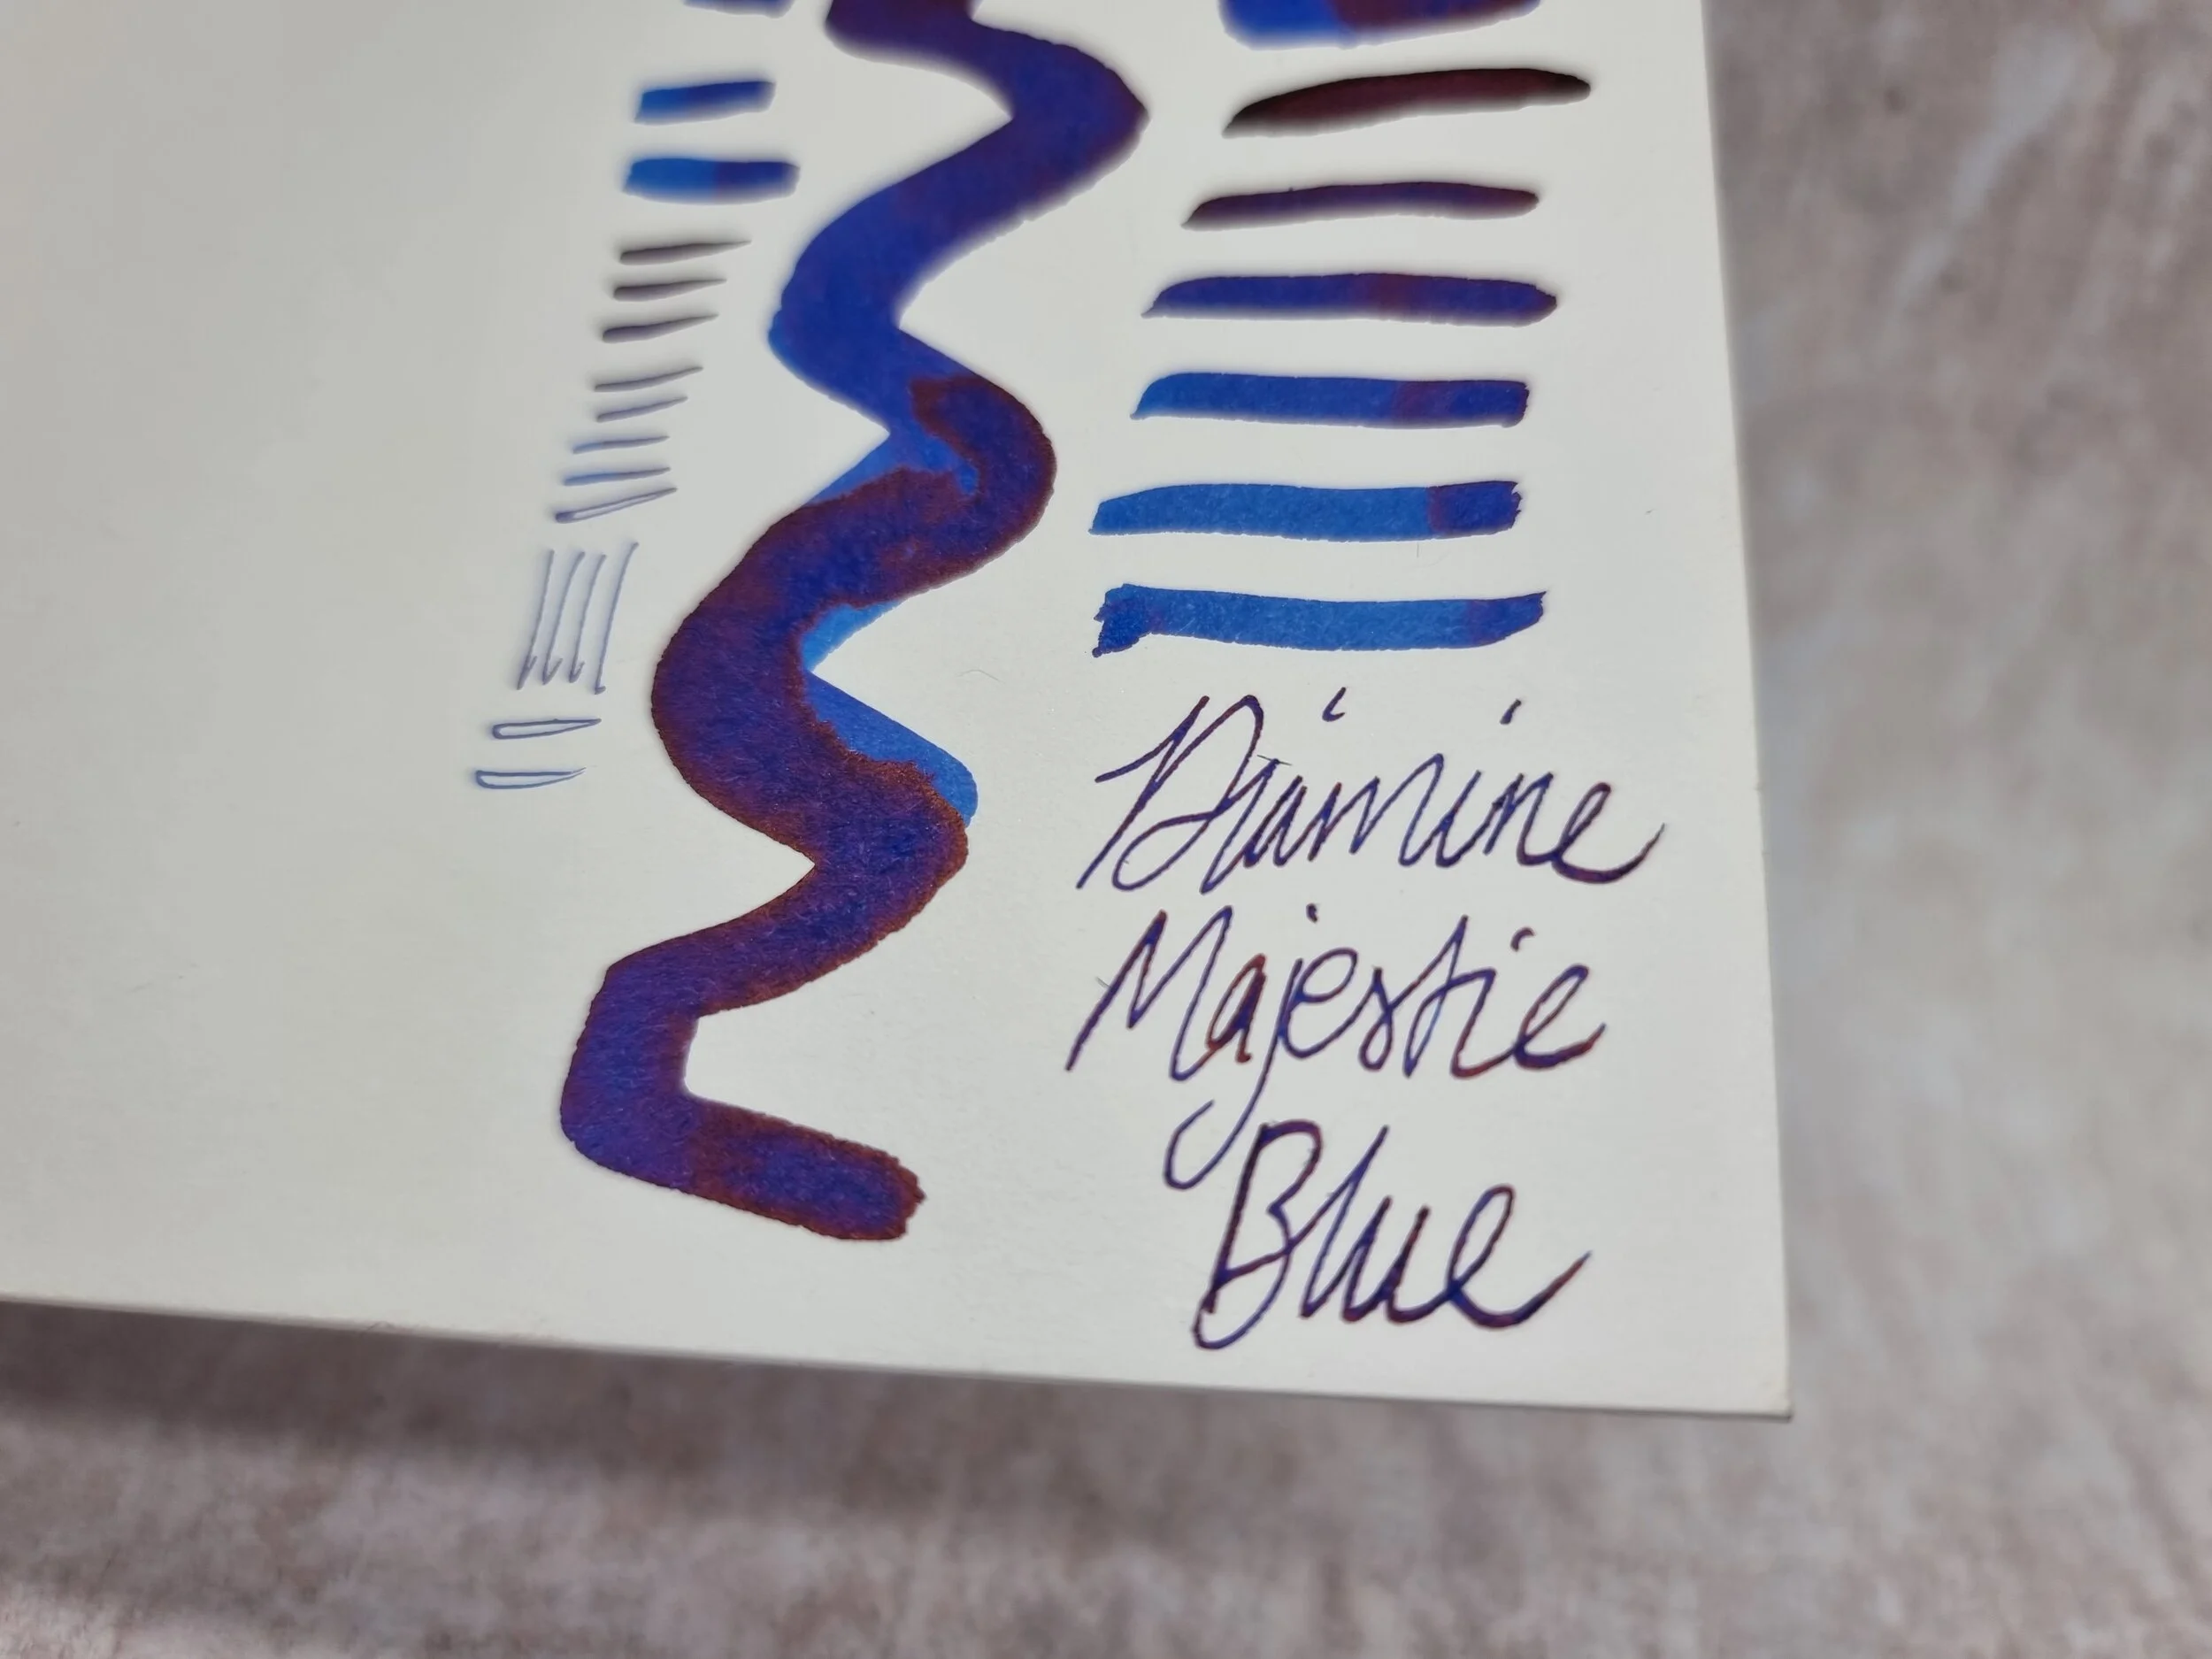 Diamine
Majestic
Blue